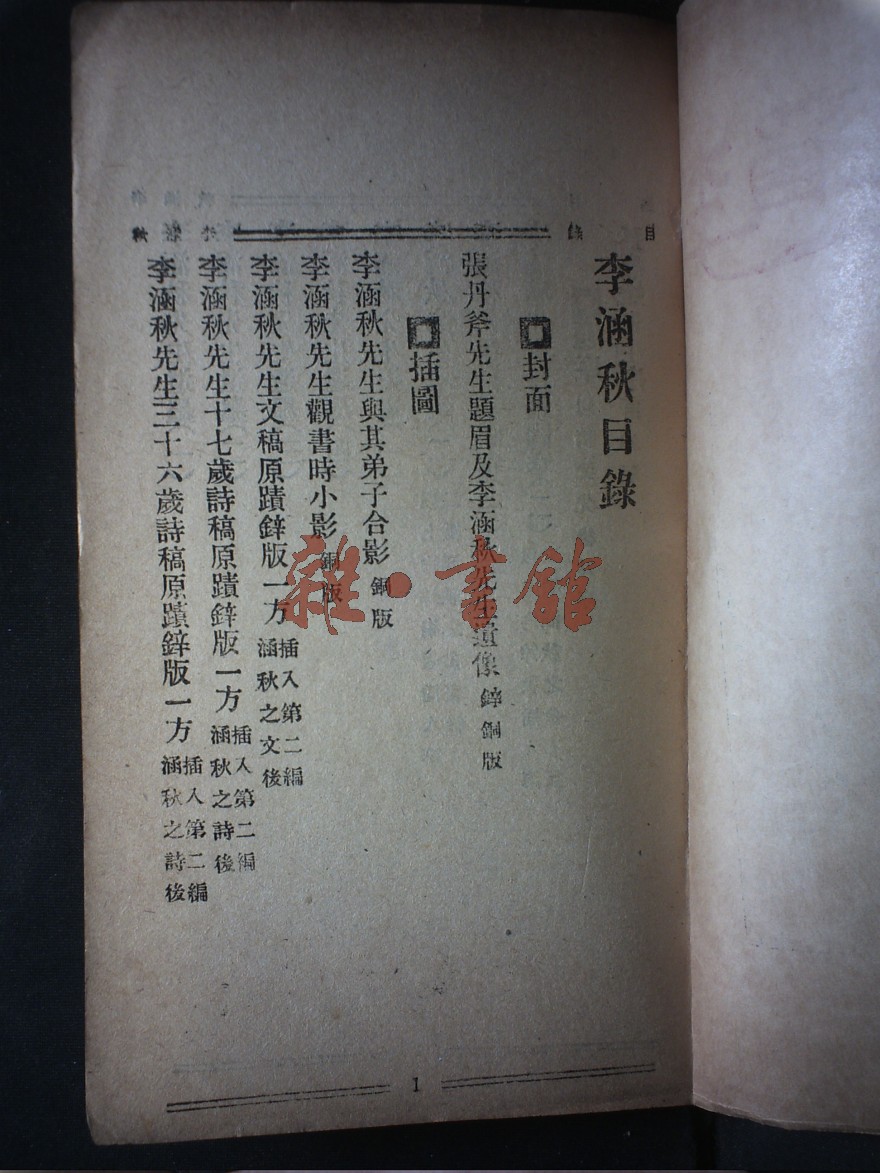 目錄
李涵秋
李涵秋目錄
封面
張丹斧先生題眉及李涵秋先生遺像 鋅銅版
插圖
李涵秋先生與其弟子合影 銅版
李涵秋先生觀書時小影 銅版
李涵秋先生文稿原蹟鋅版一方 插入第二編涵秋之文後
李涵秋先生十七歲詩稿原蹟鋅版一方 插入第二編涵秋之詩後
李涵秋先生三十六歲詩稿原蹟鋅版一方 插入第二編涵秋之詩後
1
雜·書館